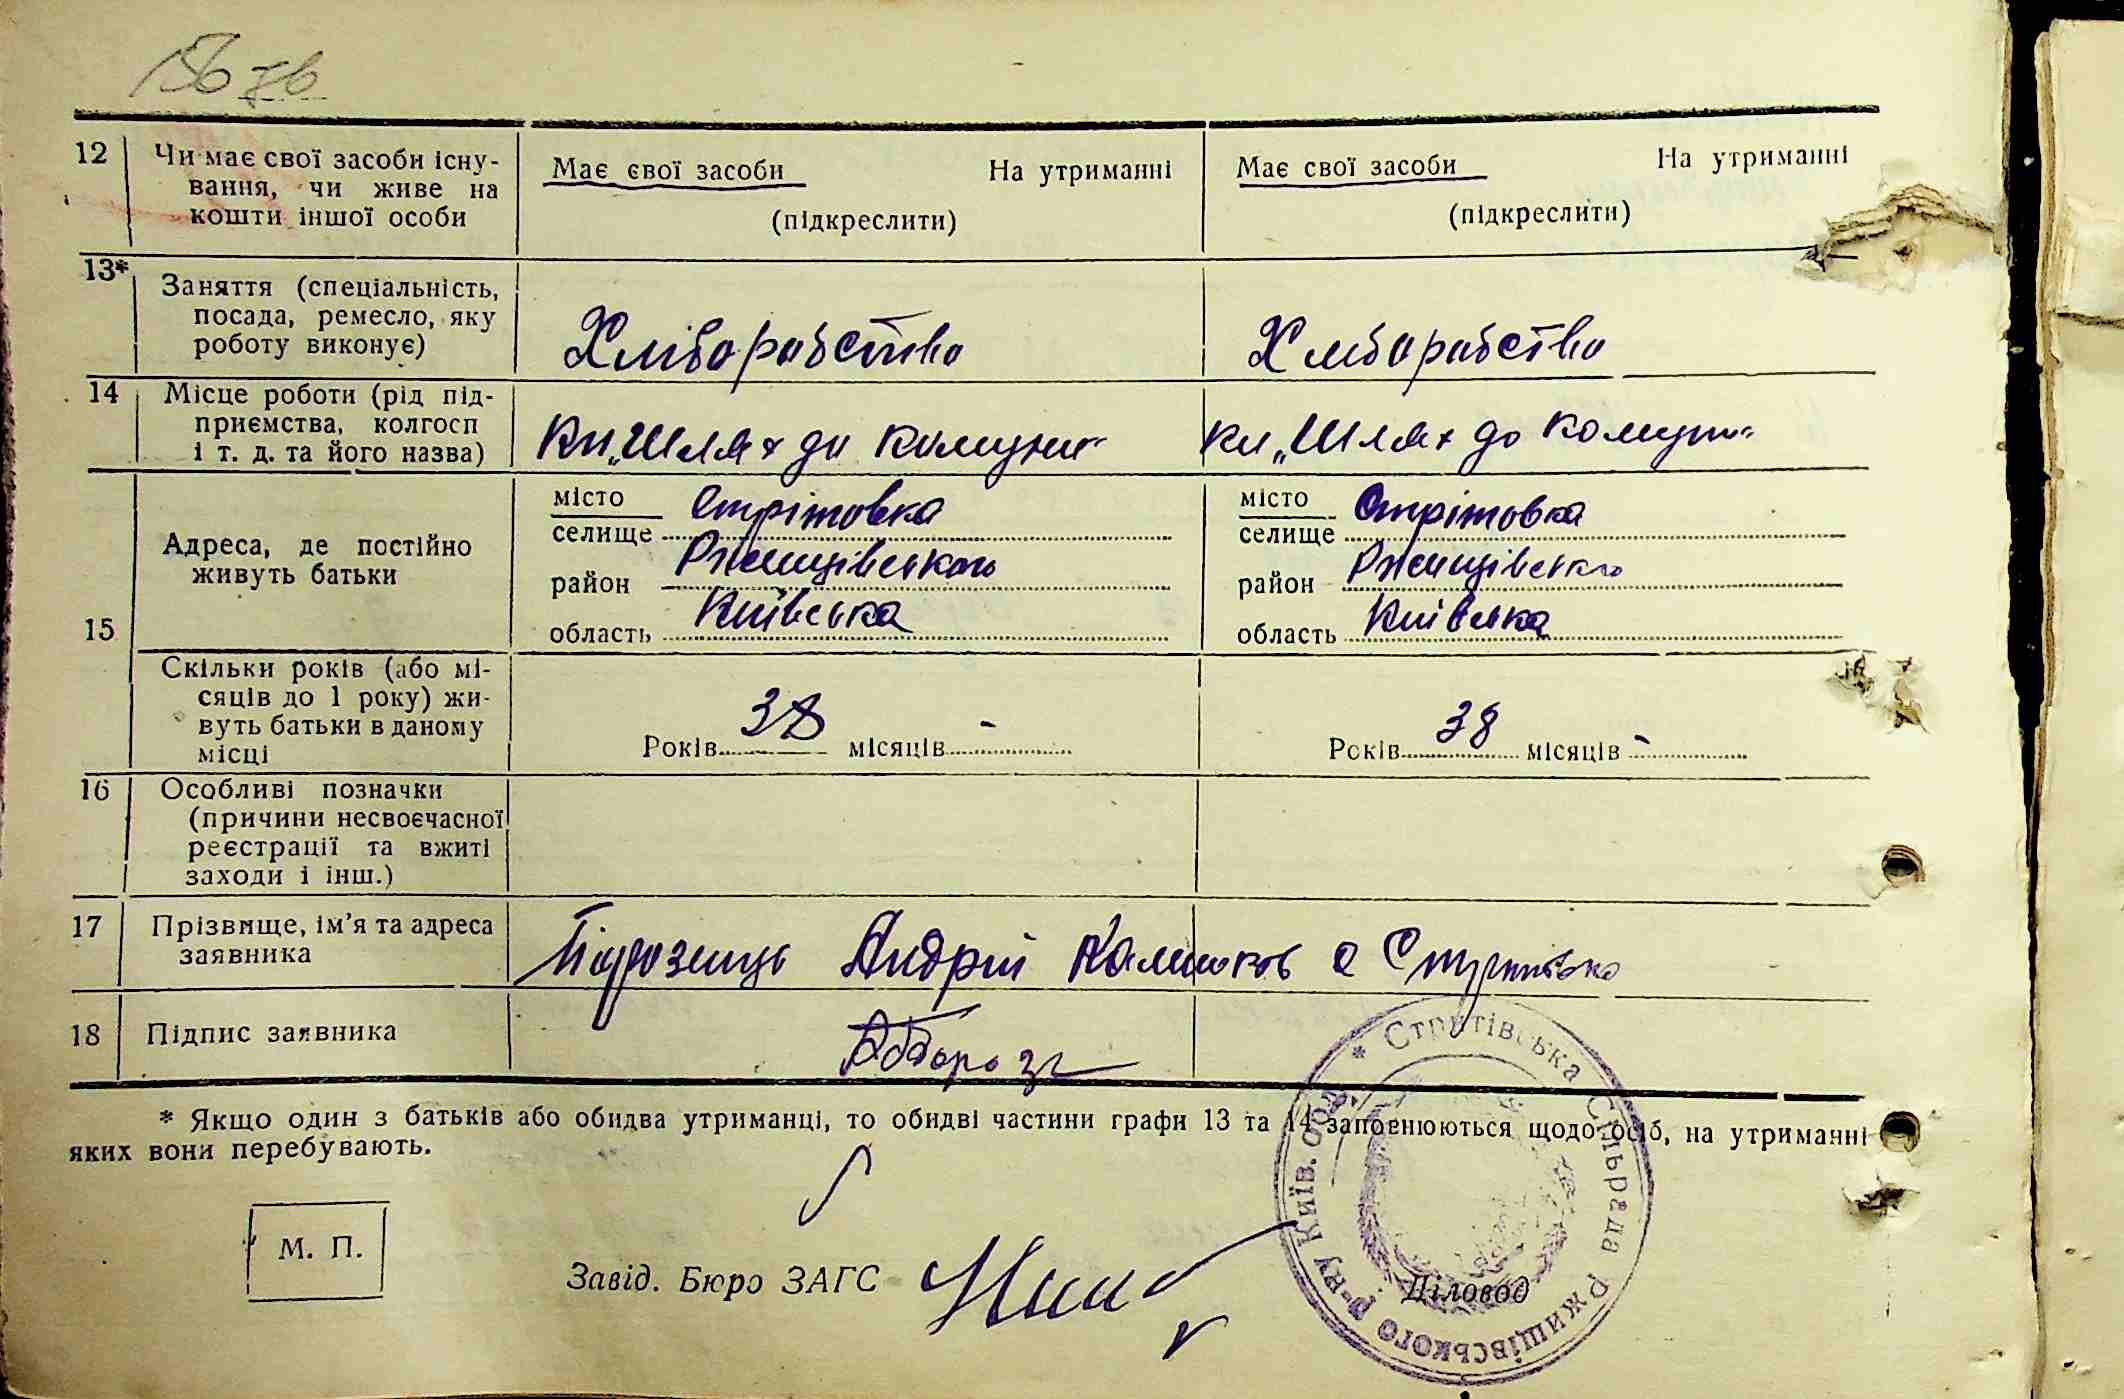 12 Чи має свої засоби існу-
вання, чи живе на
кошти іншої особи
Має свої засоби На утриманні
(підкреслити)
Має свої засоби На утриманні
(підкреслити)
13* Заняття (спеціальність,
посада, ремесло, яку
роботу виконує)
Хліборобство
Хліборобство
14 Місце роботи (рід під-
приємства, колгосп
і т. д. та його назва)
„Шлях до комуни“
„Шлях до комуни“
15 Адреса, де постійно
живуть батьки
місто Стрітовка
селище
район Ржищівського
область Київська
місто Стрітовка
селище
район Ржищівського
область Київська
Скільки років (або мі-
сяців до 1 року) жи-
вуть батьки в даному
місці
Років 38 місяців -
Років 38 місяців -
16 Особливі позначки
(причини несвоєчасної
реєстрації та вжиті
заходи і інш.)
17 Прізвище, ім'я та адреса
заявника
Андрій с
18 Підпис заявника
* Якщо один з батьків або обидва утриманці, то обидві частини графи 13 та 14 заповнюються щодо осіб, на утриманні
яких вони перебувають.
М. П.
Завід. Бюро ЗАГС
Діловод
* Стритівська Сільрада Ржищівського р-ну Київ. обл.